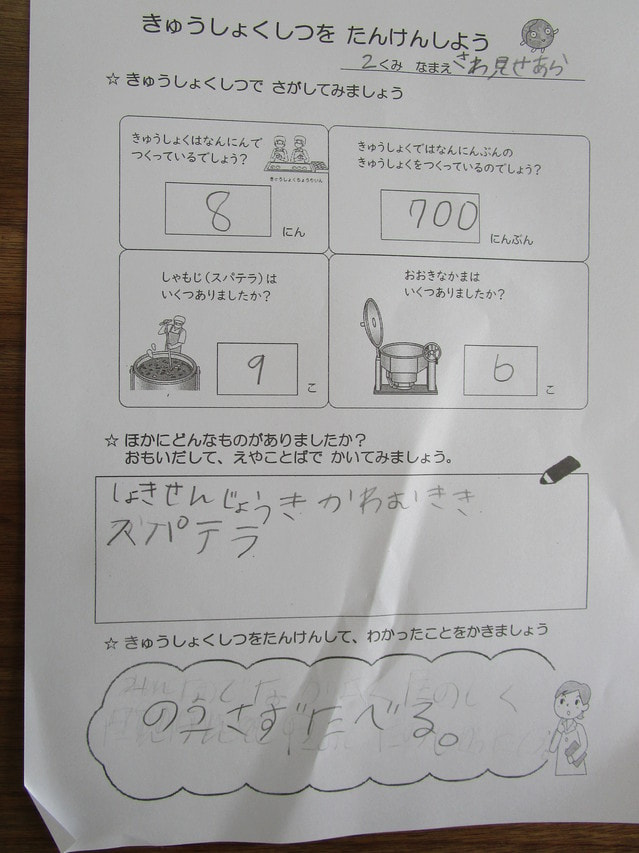 きゅうしょくしつを たんけんしよう
2くみ なまえ
☆ きゅうしょくしつで さがしてみましょう
きゅうしょくはなんにんで
つくっているでしょう?
きゅうしょくちょうりいん
8 にん
きゅうしょくではなんにんぶんの
きゅうしょくをつくっているのでしょう?
700 にんぶん
しゃもじ(スパテラ)は
いくつありましたか?
9 こ
おおきなかまは
いくつありましたか?
6 こ
☆ ほかにどんなものがありましたか?
おもいだして、えやことばで かいてみましょう。
しょきせんじょうき かわむきき
スパテラ
☆ きゅうしょくしつをたんけんして、わかったことをかきましょう
のこさずたべる。